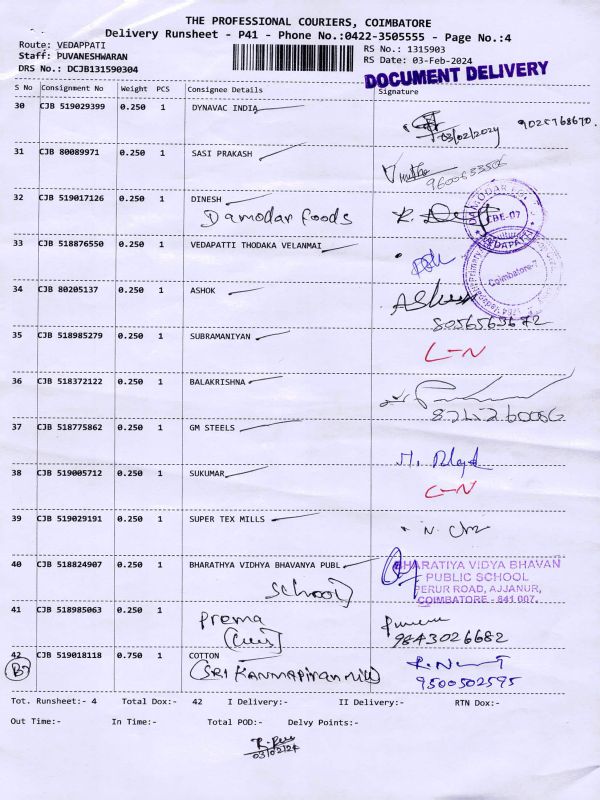 THE PROFESSIONAL COURIERS, COIMBATORE
Delivery Runsheet - P41 - Phone No.:0422-3505555 - Page No.:4
Route: VEDAPPATI
Staff: PUVANESHWARAN
DRS No.: DCJB131590304
RS No.: 1315903
RS Date: 03-Feb-2024
DOCUMENT DELIVERY
S No Consignment No Weight PCS Consignee Details Signature
30 CJB 519029399 0.250 1 DYNAVAC INDIA
03/02/2024 9025768670.
31 CJB 80089971 0.250 1 SASI PRAKASH
32 CJB 519017126 0.250 1 DINESH
Damodar foods
CBE-07
VEDAPATTI
33 CJB 518876550 0.250 1 VEDAPATTI THODAKA VELANMAI
Coimbatore-7
34 CJB 80205137 0.250 1 ASHOK
35 CJB 518985279 0.250 1 SUBRAMANIYAN
L-N
36 CJB 518372122 0.250 1 BALAKRISHNA
37 CJB 518775862 0.250 1 GM STEELS
38 CJB 519005712 0.250 1 SUKUMAR
L-N
39 CJB 519029191 0.250 1 SUPER TEX MILLS
40 CJB 518824907 0.250 1 BHARATHYA VIDHYA BHAVANYA PUBL
School
BHARATIYA VIDYA BHAVAN
PUBLIC SCHOOL
PERUR ROAD, AJJANUR,
COIMBATORE - 641 007.
41 CJB 518985063 0.250 1
Prema
9843026682
42 CJB 519018118 0.750 1 COTTON
(SRI Kannapiran Mill)
9500502595
Tot. Runsheet:- 4 Total Dox:- 42 I Delivery:- II Delivery:- RTN Dox:-
Out Time:- In Time:- Total POD:- Delvy Points:-
03/02/24